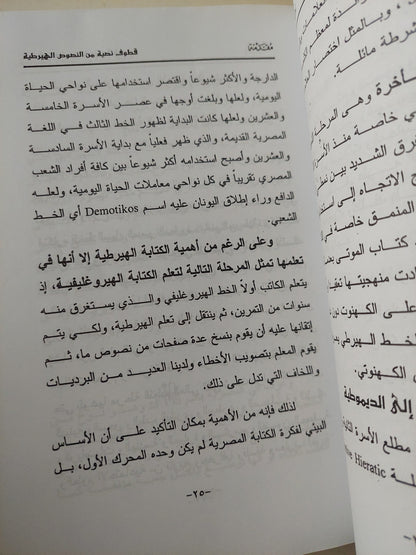 مقدمة
قطوف نصية من النصوص الهيرطية
الدارجة والأكثر شيوعاً واقتصر استخدامها على نواحي الحياة
اليومية، ولعلها وبلغت أوجها في عصر الأسرة الخامسة
والعشرين ولعلها كانت البداية لظهور الخط الثالث في اللغة
المصرية القديمة، والذي ظهر فعلياً مع بداية الأسرة السادسة
والعشرين وأصبح استخدامه أكثر شيوعاً بين كافة أفراد الشعب
المصري تقريباً في كل نواحي معاملات الحياة اليومية، ولعله
الدافع وراء إطلاق اليونان عليه اسم Demotikos أي الخط
الشعبي.
وعلى الرغم من أهمية الكتابة الهيرطية إلا أنها في
تعلمها تمثل المرحلة التالية لتعلم الكتابة الهيروغليفية، إذ
يتعلم الكاتب أولاً الخط الهيروغليفي والذي يستغرق منه
سنوات من التمرين، ثم ينتقل إلى تعلم الهيرطية، ولكي يتم
إتقانها عليه أن يقوم بنسخ عدة صفحات من نصوص ما، ثم
يقوم المعلم بتصويب الأخطاء ولدينا العديد من البرديات
واللخاف التي تدل على ذلك.
لذلك فإنه من الأهمية بمكان التأكيد على أن الأساس
البيئي لفكرة الكتابة المصرية لم يكن وحده المحرك الأول، بل
-٢٥-
لمعظم
، وبالمثل اختصار
شرطة مائلة.
وهى المرحلة
ي خاصة منذ
الشديد بين
ج الاتجاه إلى
المنمق خاصة في
كتاب الموتى
دت منهجيتها
على الكهنوت
الخط الهيرطي
ي الكهنوتي.
إلى الديموطية
مطلع الأسرة
Hieratic